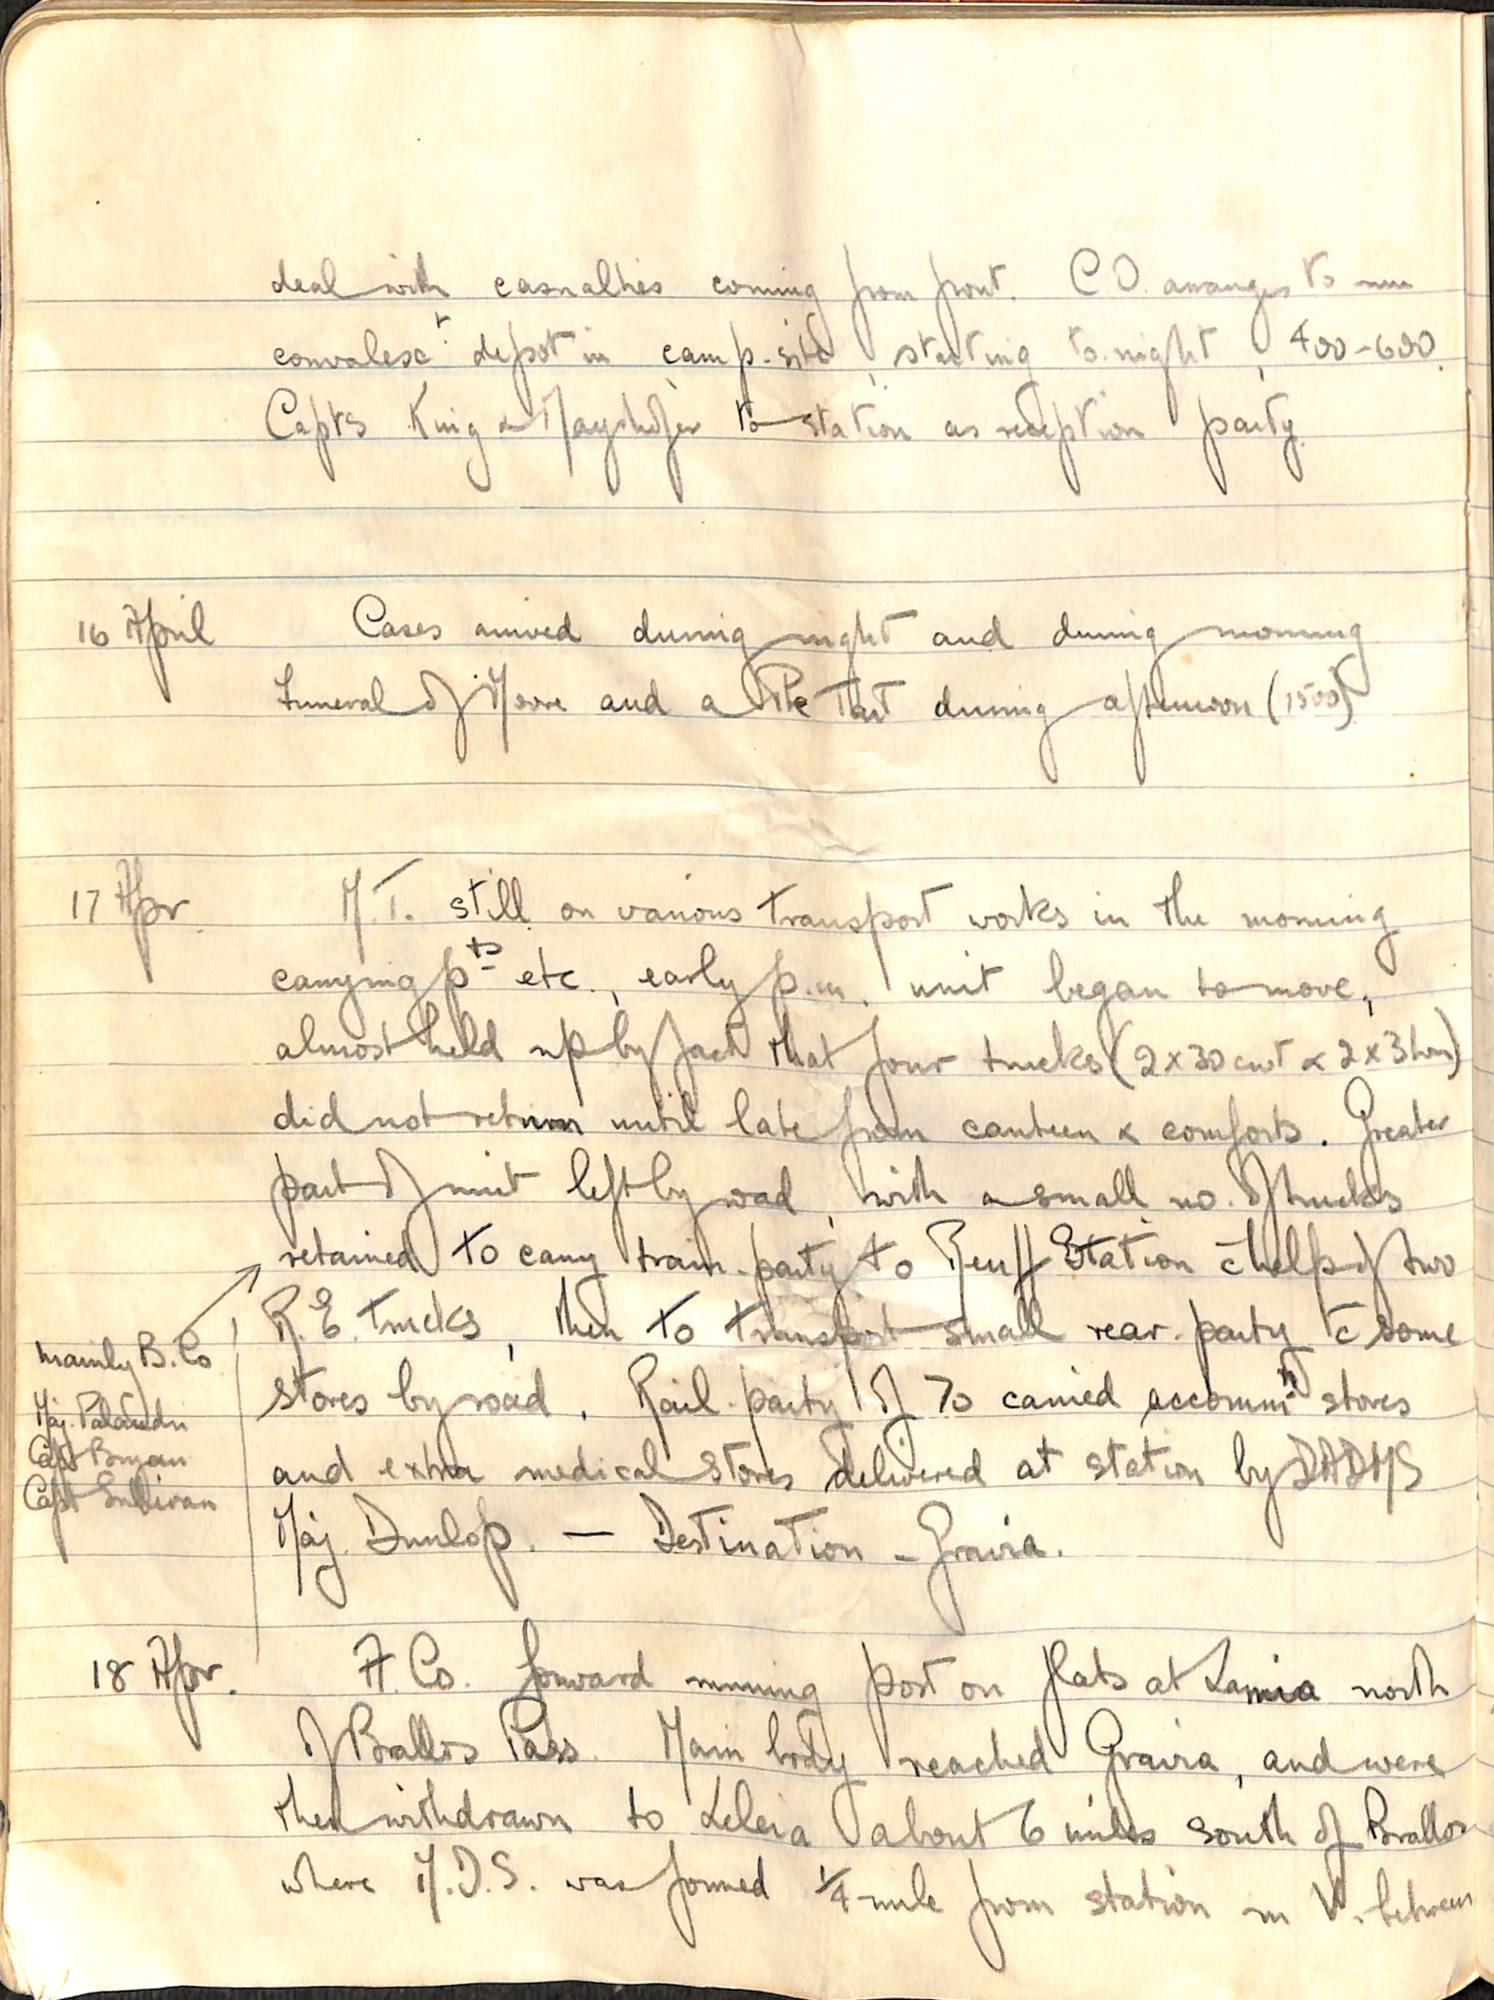 deal with casualties coming from front. C.O. arranges to run
convalesc.t depot in camp-site, starting to-night, 400-600.
Capts King & Mayrhofer to station as reception party.
16 April Cases arrived during night and during morning
Funeral of Moore and a Pte Tait during afternoon (1500)
17 Apr. M.T. still on various transport works in the morning
carrying pts etc., early p.m. unit began to move,
almost held up by fact that four trucks (2 x 30 cwt & 2 x 3 ton)
did not return until late from canteen & comforts. Greater
part of unit left by road, with a small no. of trucks
retained to carry train-party to Station c̄ help of two
R.E. trucks, then to transport small rear-party c̄ some
stores by road. Rail-party of 70 carried accommn stores
and extra medical stores delivered at station by DADMS
Maj. Dunlop. — Destination - Gravia.
mainly B. Co
Maj.
Capt Bryan
Capt Sullivan
18 Apr. A. Co. forward running post on flats at Lamia north
of Brallos Pass. Main body reached Gravia, and were
then withdrawn to about 6 miles south of Brallos
where M.D.S. was formed 1/4 mile from station in V. between